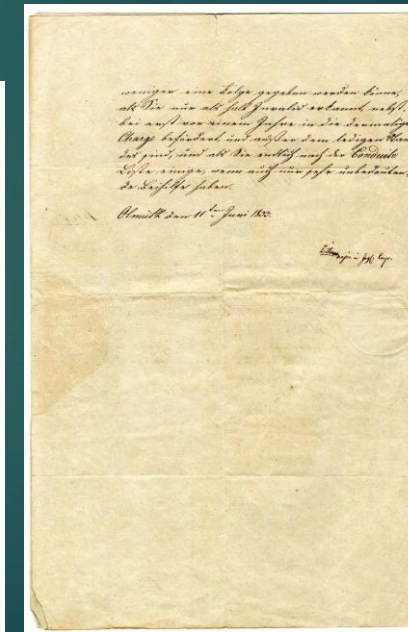 weniger eine Folge gegeben werden könne,
als Sie nur als halb Invalid erkannt, nebst
bei erst vor einem Jahre in die dermalige
Charge befördert, und außer dem ledigen Stan
des sind, und als Sie endlich nach der Conduite
Liste einige, wenn auch nur sehr unbedeuten
de Beihilfe haben.
Olmütz den 11ten Juni 1833.